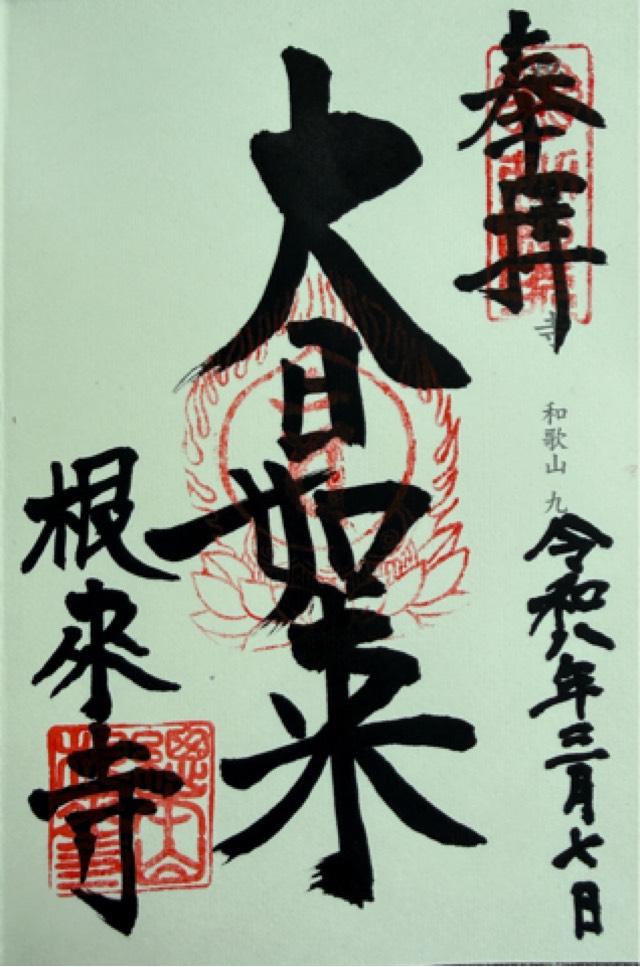 奉拝
寺 和歌山 九
令和八年三月七日
大日如来
根来寺